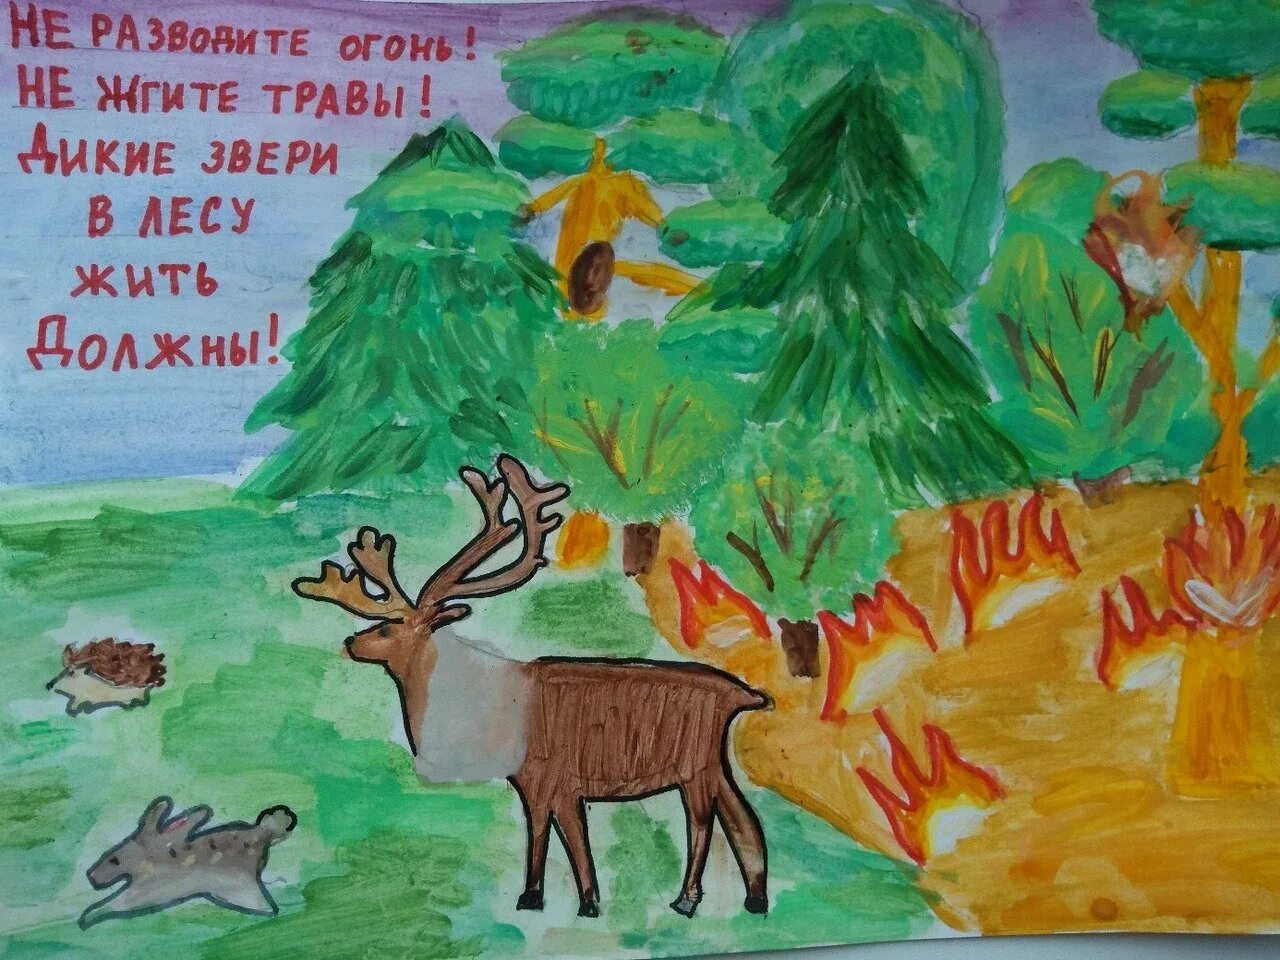 НЕ РАЗВОДИТЕ ОГОНЬ!
НЕ ЖГИТЕ ТРАВЫ!
ДИКИЕ ЗВЕРИ
В ЛЕСУ
ЖИТЬ
ДОЛЖНЫ!